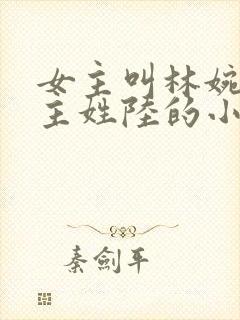 女主叫林婉
主姓陸的小
秦劍平